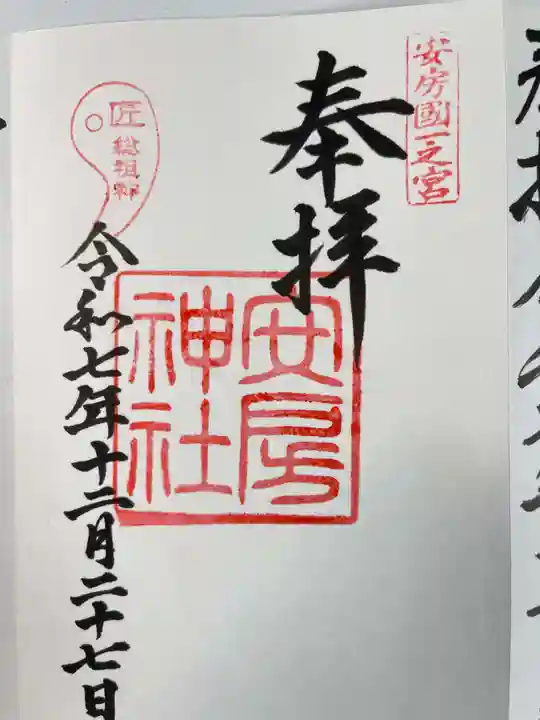 安房國一之宮
奉拝
安房
神社
匠
総祖神
令和七年十二月二十七日